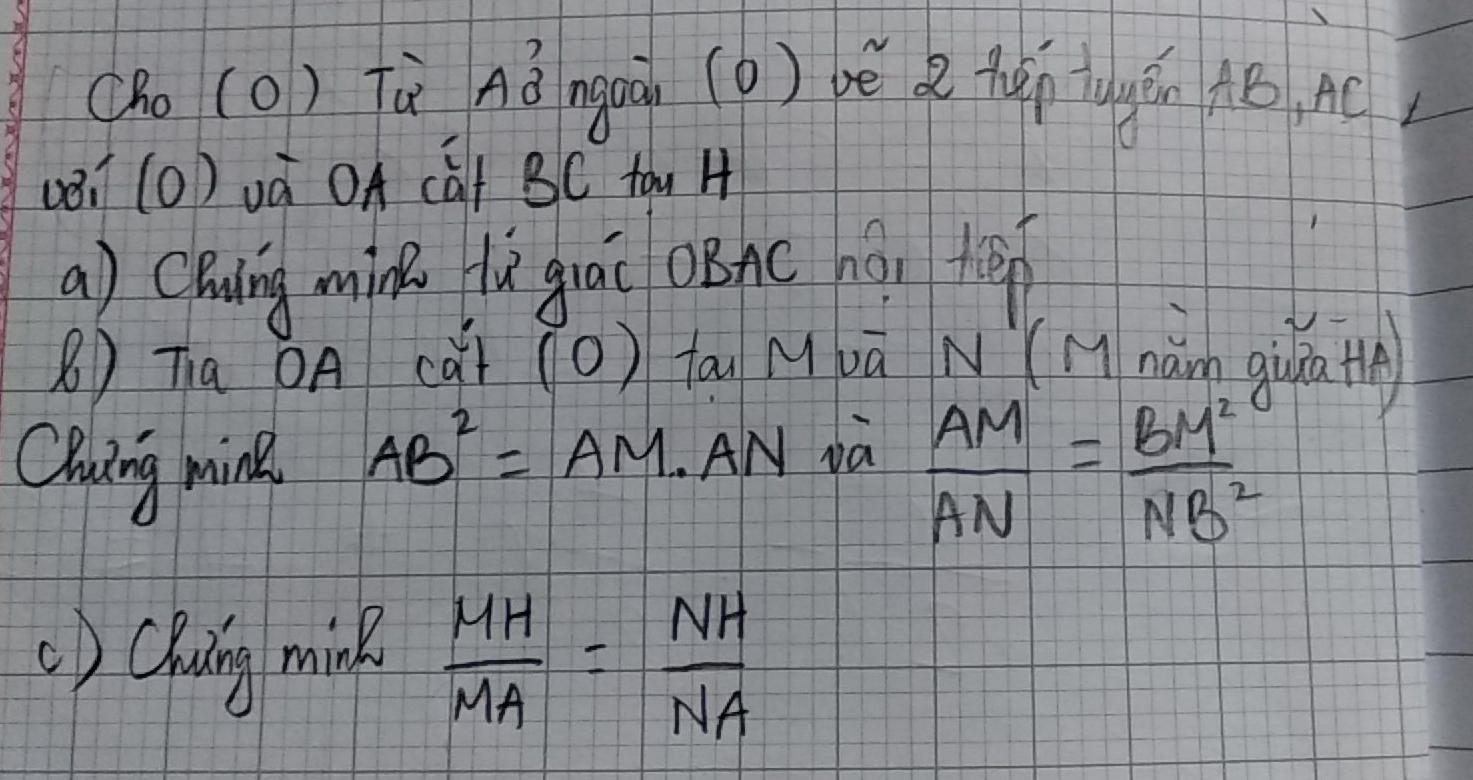 Cho (O) Từ A ở ngoài (O) vẽ 2 tiếp tuyến AB, AC
với (O) và OA cắt BC tại H
a) Chứng minh tứ giác OBAC nội tiếp
b) Tia OA cắt (O) tại M và N (M nằm giữa HA)
Chứng minh AB² = AM. AN và AM/AN = BM²/NB²
c) Chứng minh MH/MA = NH/NA